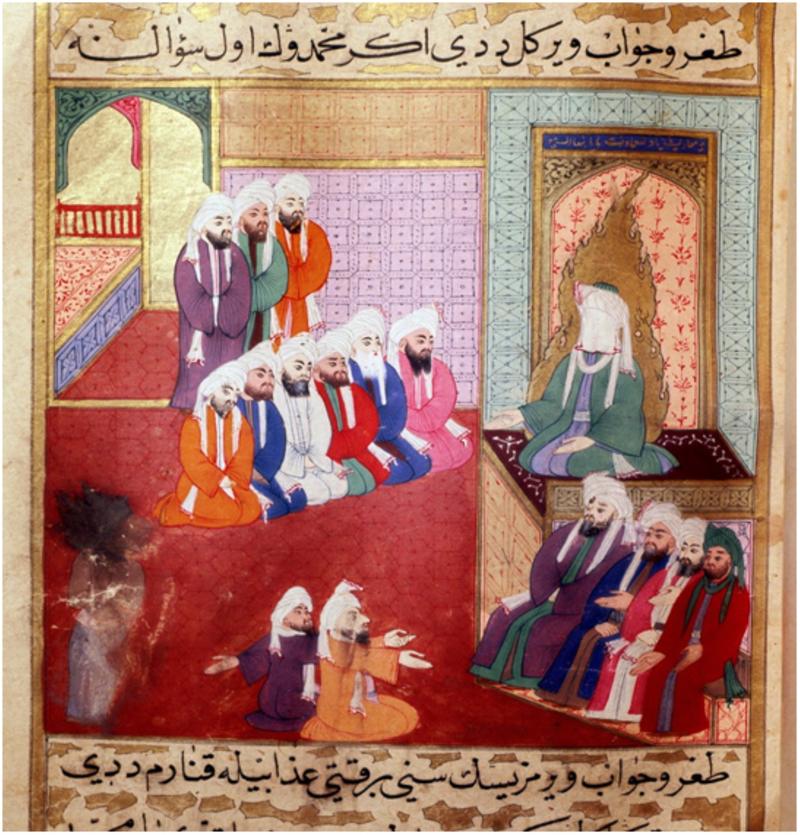 طغرو جواب ويركل ددي اكر محمدوڭ اول سؤالنه
طغرو جواب ويرمزيسك سني برقتي عذابيله قنارم ددي